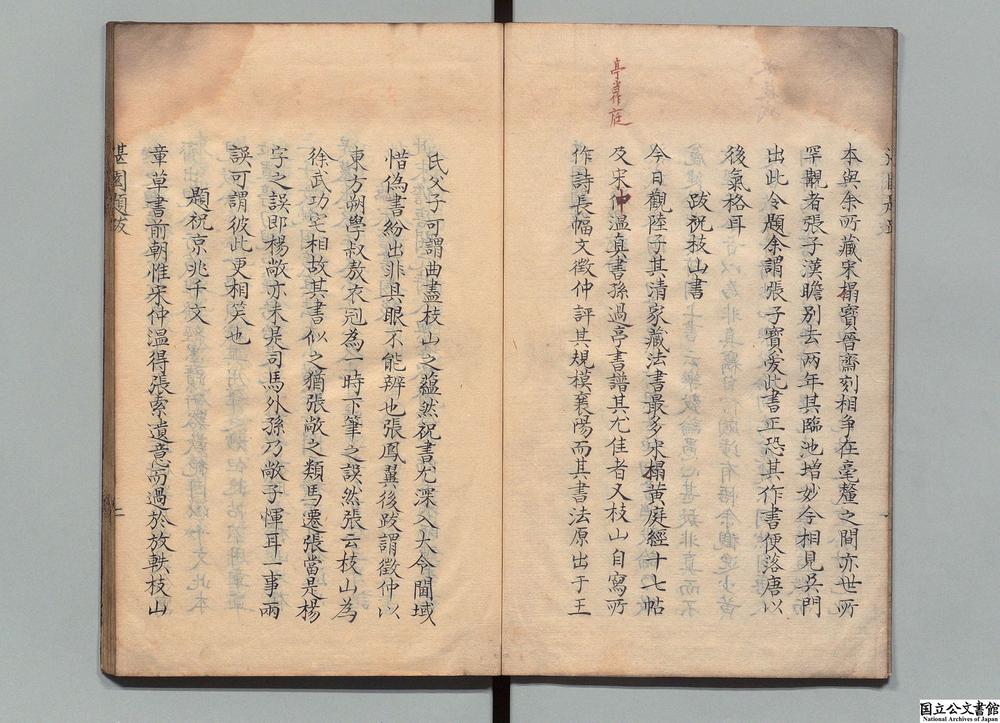 亭當作庭
本與余所藏宋搨寶晉齋刻相爭在毫釐之間亦世所
罕觀者張子漢瞻別去兩年其臨池增妙今相見吳門
出此令題余謂張子寶愛此書正恐其作書便落唐以
後氣格耳
跋祝枝山書
今日觀陸子其清家藏法書最多宋搨黃庭經十七帖
及宋仲溫真書孫過亭書譜其尤佳者又枝山自寫所
作詩長幅文徵仲評其規模襄陽而其書法原出于王
氏父子可謂曲盡枝山之蘊然祝書尤深入大令閫域
惜偽書紛出非具眼不能辨也張鳳翼後跋謂徵仲以
東方朔學叔敖衣冠為一時下筆之誤然張云枝山為
徐武功宅相故其書似之猶張敞之類馬遷張當是楊
字之誤即楊敞亦未是司馬外孫乃敞子惲耳一事兩
誤可謂彼此更相笑也
題祝京兆千文
章草書前朝惟宋仲溫得張索遺意而過於放軼枝山
湛園題跋
国立公文書館
National Archives of Japan